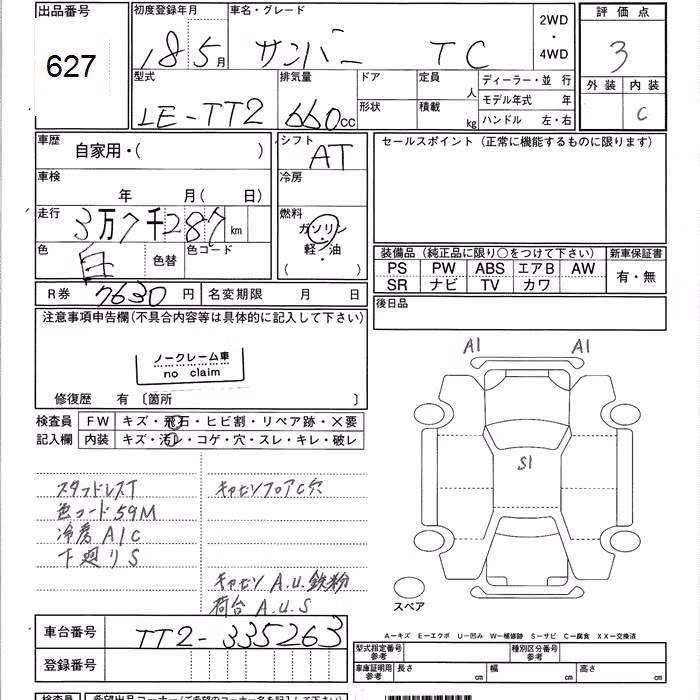 出品番号
627
初度登録年月
18 5月
車名・グレード
サンバー TC
2WD
・
4WD
評価点
3
外装 内装
C
型式
LE-TT2
排気量
660cc
ドア
形状
定員
人
積載
kg
ディーラー・並 行
モデル年式 年
ハンドル 左・右
車歴
自家用・( )
シフト
AT
セールスポイント (正常に機能するものに限ります)
車検
年 月( 日)
冷房
走行
3万7千287km
燃料
ガソリン
軽・油
( )
色
白
色替
色コード
装備品 (純正品に限り○をつけて下さい)
新車保証書
PS PW ABS エアB AW
SR ナビ TV カワ
有・無
R券 7630円
名変期限 月 日
後日品
注意事項申告欄(不具合内容等は具体的に記入して下さい)
ノークレーム車
no claim
修復歴 有 〔箇所 〕
検査員
記入欄
FW キズ・飛石・ヒビ割・リペア跡・×要
内装 キズ・汚レ・コゲ・穴・スレ・キレ・破レ
A1 A1
S1
スタッドレスT
色コード59M
冷房A/C
下廻りS
キャビンフロアC穴
キャビンA.U.鉄粉
荷台A.U.S
スペア
A－キズ E－エクボ U－凹み W－補修跡 S－サビ C－腐食 XX－交換済
車台番号
TT2-335263
登録番号
型式指定番号
参考
種別区分番号
参考
車庫証明用
参考
長さ cm
幅 cm
高さ cm
検査員
希望出品コーナー(ご希望のコーナー名を記入して下さい)